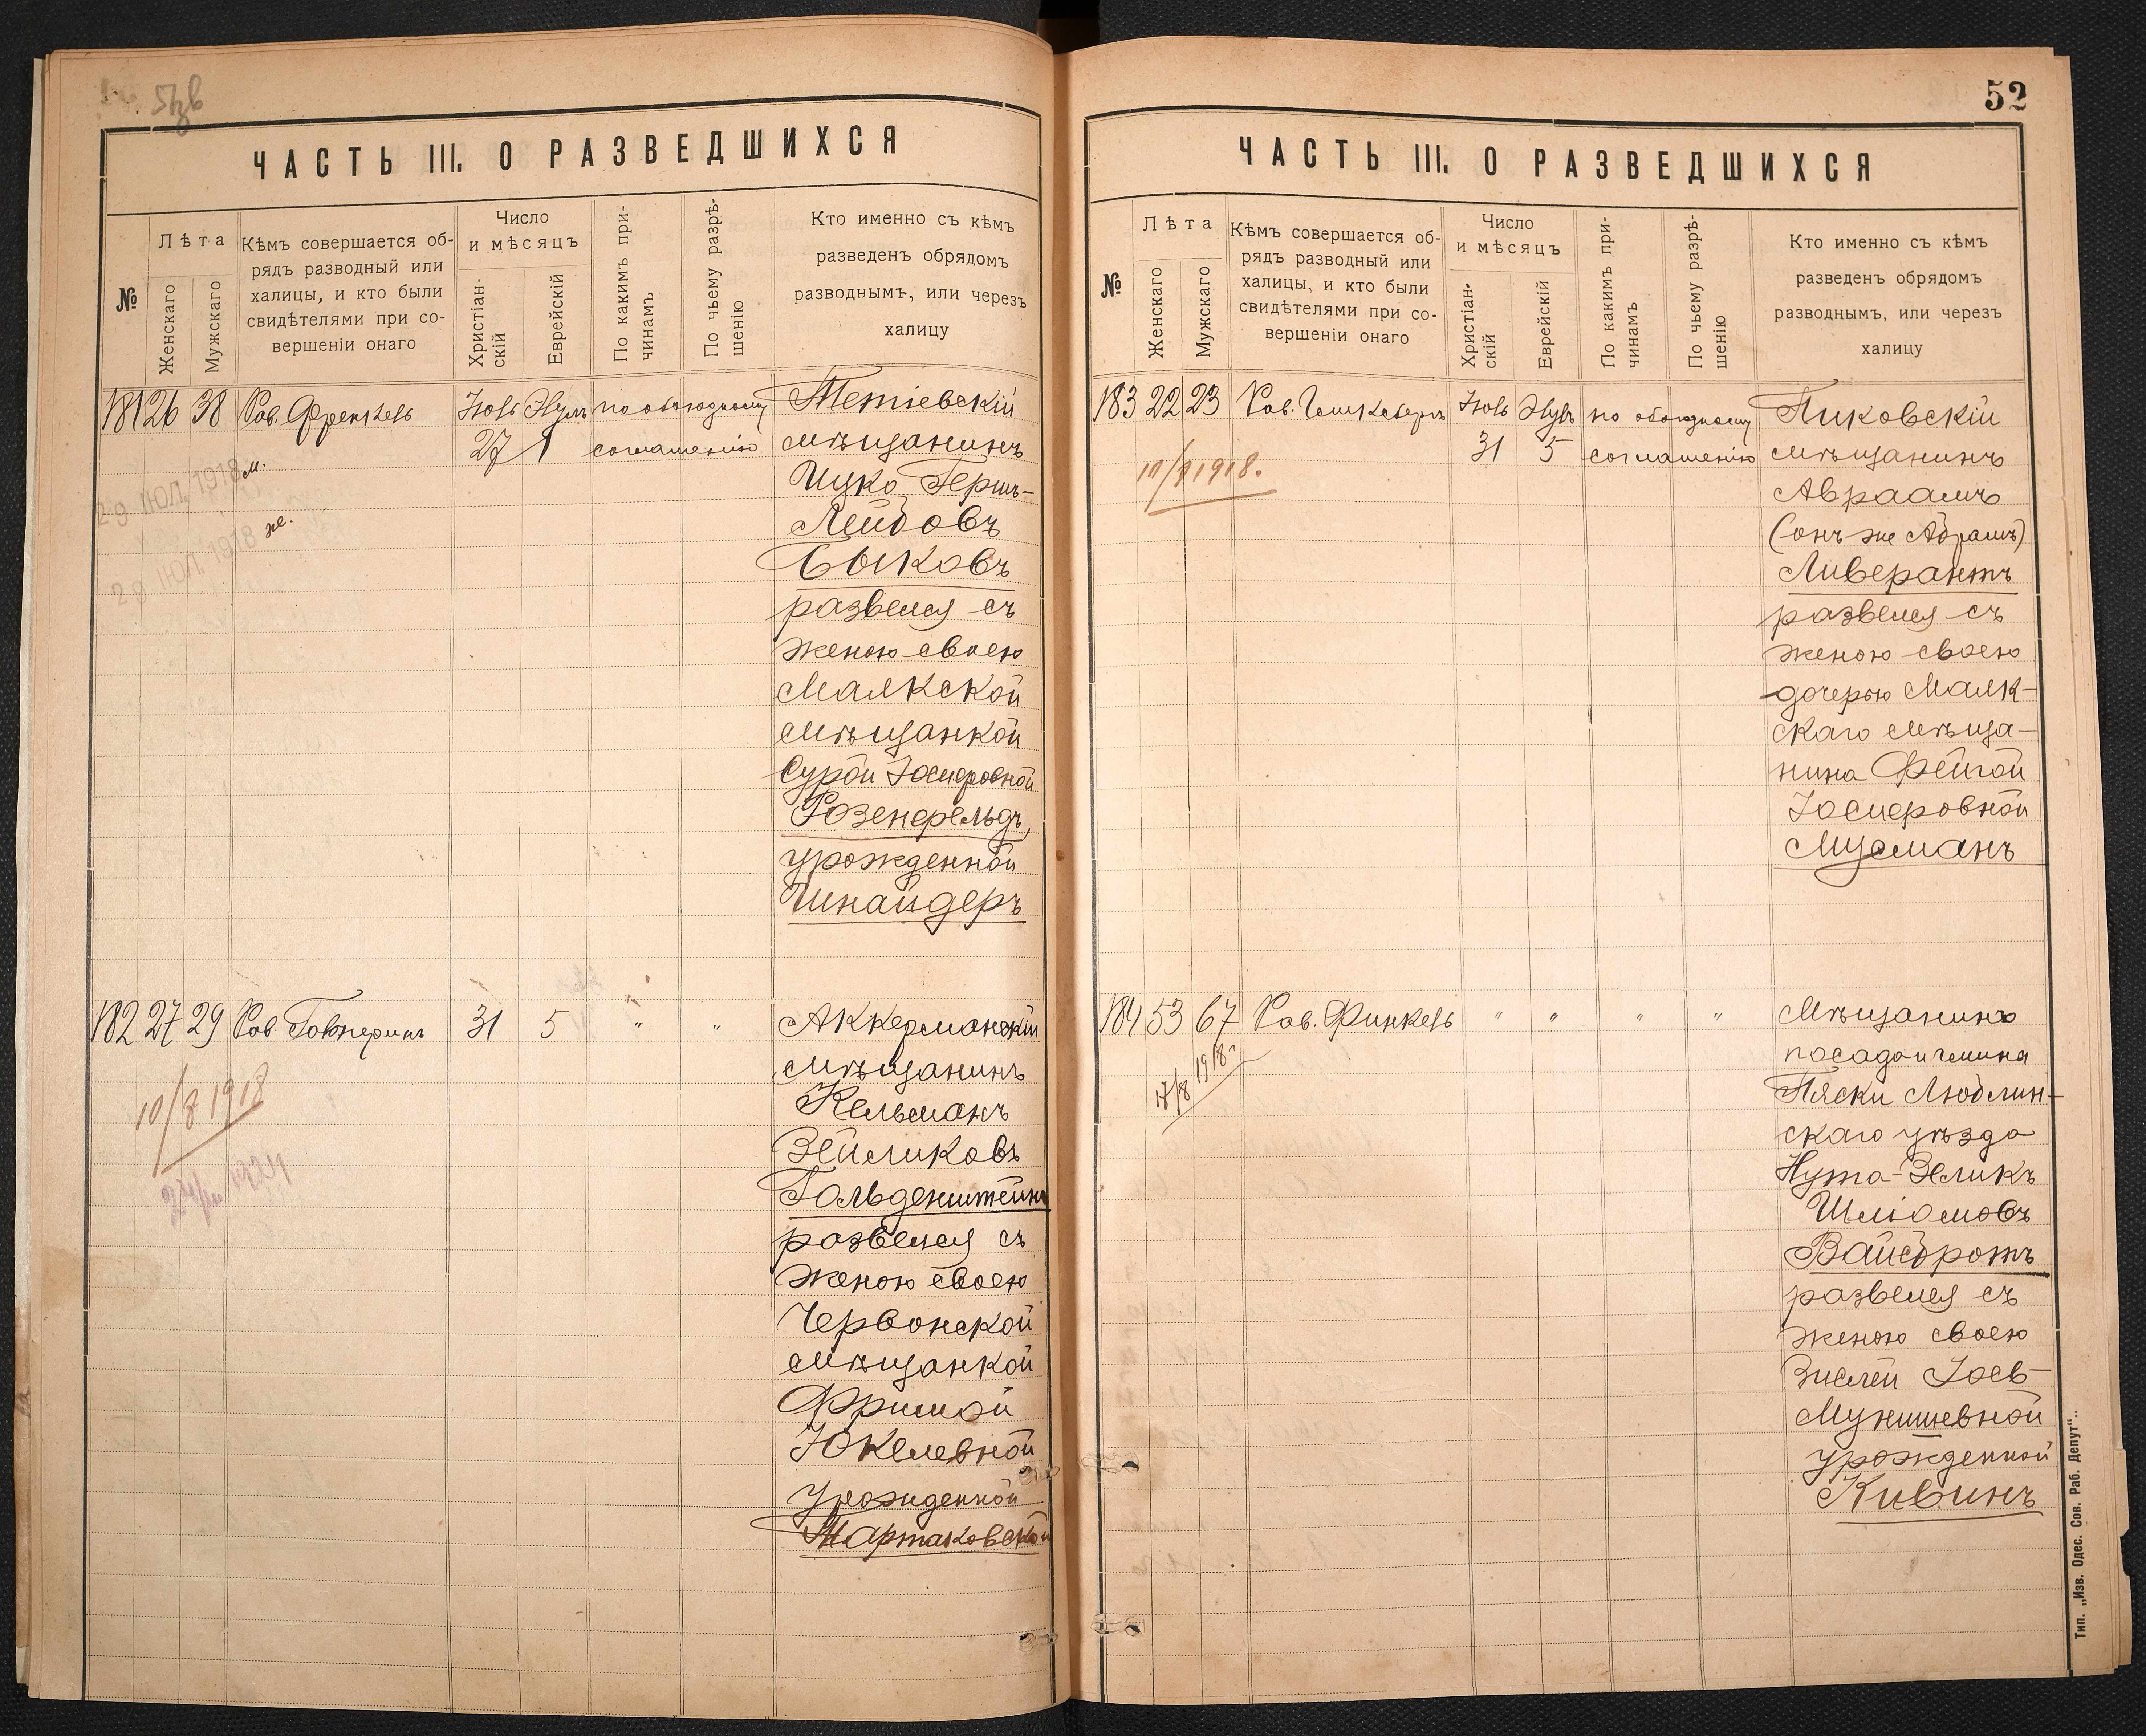 ЧАСТЬ III. О РАЗВЕДШИХСЯ
№
Лѣта
Женскаго
Мужскаго
Кѣмъ совершается об-
рядъ разводный или
халицы, и кто были
свидѣтелями при со-
вершеніи онаго
Число
и мѣсяцъ
Христіан-
скій
Еврейскій
По какимъ при-
чинамъ
По чьему разрѣ-
шенію
Кто именно съ кѣмъ
разведенъ обрядомъ
разводнымъ, или черезъ
халицу
181 26 38 Рав. Френкель Іюль по обоюдному Тетіевскій
27 1 соглашенію мѣщанинъ
29 ІЮЛ. 1918 м.
29 ІЮЛ. 1918 же.
Ицко Гершъ-
Лейбовъ
Быковъ
развелся съ
женою своею
Малкской
мѣщанкой
Сурой Іосифовной
Розенфельдъ,
урожденной
Шнайдеръ
182 27 29 Рав. 31 5 " " Аккерманскій
10/8 1918
мѣщанинъ
Кельманъ
Зейликовъ
Гольденштейнъ
развелся съ
женою своею
Червонской
мѣщанкой
Фримой
Юкелевной
урожденной
52
ЧАСТЬ III. О РАЗВЕДШИХСЯ
№
Лѣта
Женскаго
Мужскаго
Кѣмъ совершается об-
рядъ разводный или
халицы, и кто были
свидѣтелями при со-
вершеніи онаго
Число
и мѣсяцъ
Христіан-
скій
Еврейскій
По какимъ при-
чинамъ
По чьему разрѣ-
шенію
Кто именно съ кѣмъ
разведенъ обрядомъ
разводнымъ, или черезъ
халицу
183 22 23 Рав. Іюль по обоюдному Пиковскій
31 5 соглашенію мѣщанинъ
10/8 1918.
Авраамъ
(онъ же Абрамъ)
Ливерантъ
развелся съ
женою своею
дочерью Малк-
скаго мѣща-
нина Фейгой
Іосифовной
Мусманъ
184 53 67 Рав. Финкель " " " " Мѣщанинъ
17/8 1918 г.
посада и гмина
Пяски Люблин-
скаго уѣзда
Нута-Зеликъ
Шліомовъ
Вайсбротъ
развелся съ
женою своею
Зислей Іось-
Мунишевной
урожденной
Кивинъ
Тип. „Изв. Одес. Сов. Раб. Депут“..